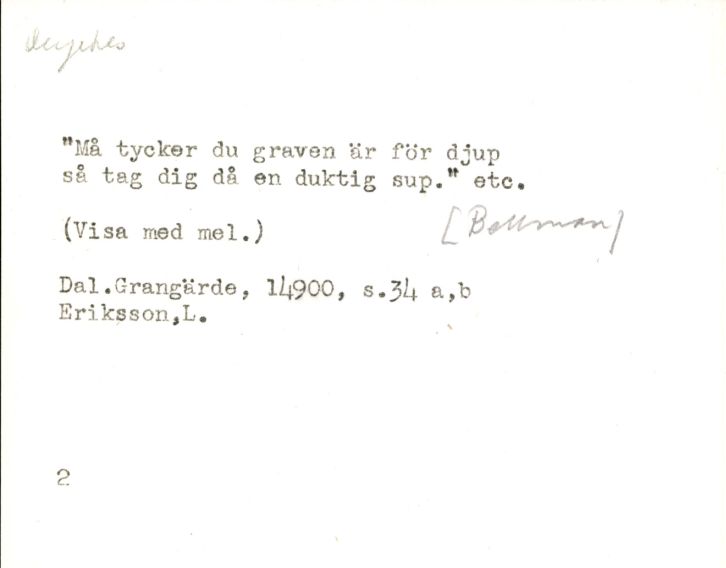 Dryckes
"Må tycker du graven är för djup
så tag dig då en duktig sup." etc.
(Visa med mel.)
[Bellman]
Dal.Grangärde, 14900, s.34 a,b
Eriksson,L.
2